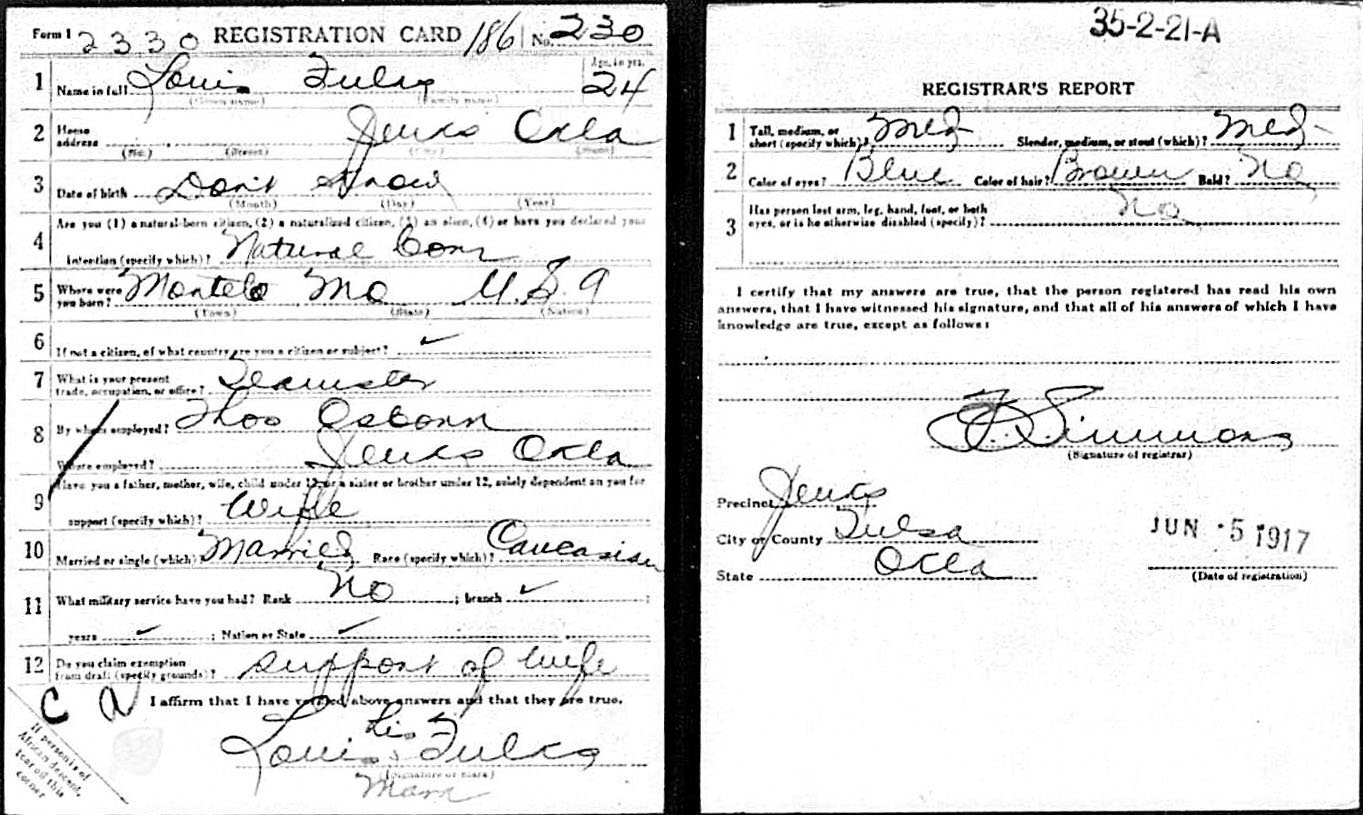 Form 1 2330 REGISTRATION CARD 186 No. 230
1 Name in full Louis Fulks Age, in yrs. 24
(Given name) (Family name)
2 Home address Jenks Okla
(No.) (Street) (City) (State)
3 Date of birth Don't Know
(Month) (Day) (Year)
4 Are you (1) a natural-born citizen, (2) a naturalized citizen, (3) an alien, (4) or have you declared your
intention (specify which)? Natural Born
5 Where were you born? Montelo Mo U.S.A
(Town) (State) (Nation)
6 If not a citizen, of what country are you a citizen or subject? ✓
7 What is your present trade, occupation, or office? Teamster
8 By whom employed? Thos Osborn
Where employed? Jenks Okla
9 Have you a father, mother, wife, child under 12, or a sister or brother under 12, solely dependent on you for
support (specify which)? Wife
10 Married or single (which)? Married Race (specify which)? Caucasian
11 What military service have you had? Rank No ; branch ✓ ;
years ✓ ; Nation or State ✓
12 Do you claim exemption from draft (specify grounds)? support of wife
I affirm that I have verified above answers and that they are true.
C
his
Louis Fulks
(Signature or mark)
Mark
If person is of
African descent,
tear off this
corner
35-2-21-A
REGISTRAR'S REPORT
1 Tall, medium, or short (specify which)? Med- Slender, medium, or stout (which)? Med-
2 Color of eyes? Blue Color of hair? Brown Bald? No
3 Has person lost arm, leg, hand, foot, or both eyes, or is he otherwise disabled (specify)? No
I certify that my answers are true, that the person registered has read his own
answers, that I have witnessed his signature, and that all of his answers of which I have
knowledge are true, except as follows:
Simmons
(Signature of registrar)
Precinct Jenks
City or County Tulsa
State Okla
JUN 5 1917
(Date of registration)